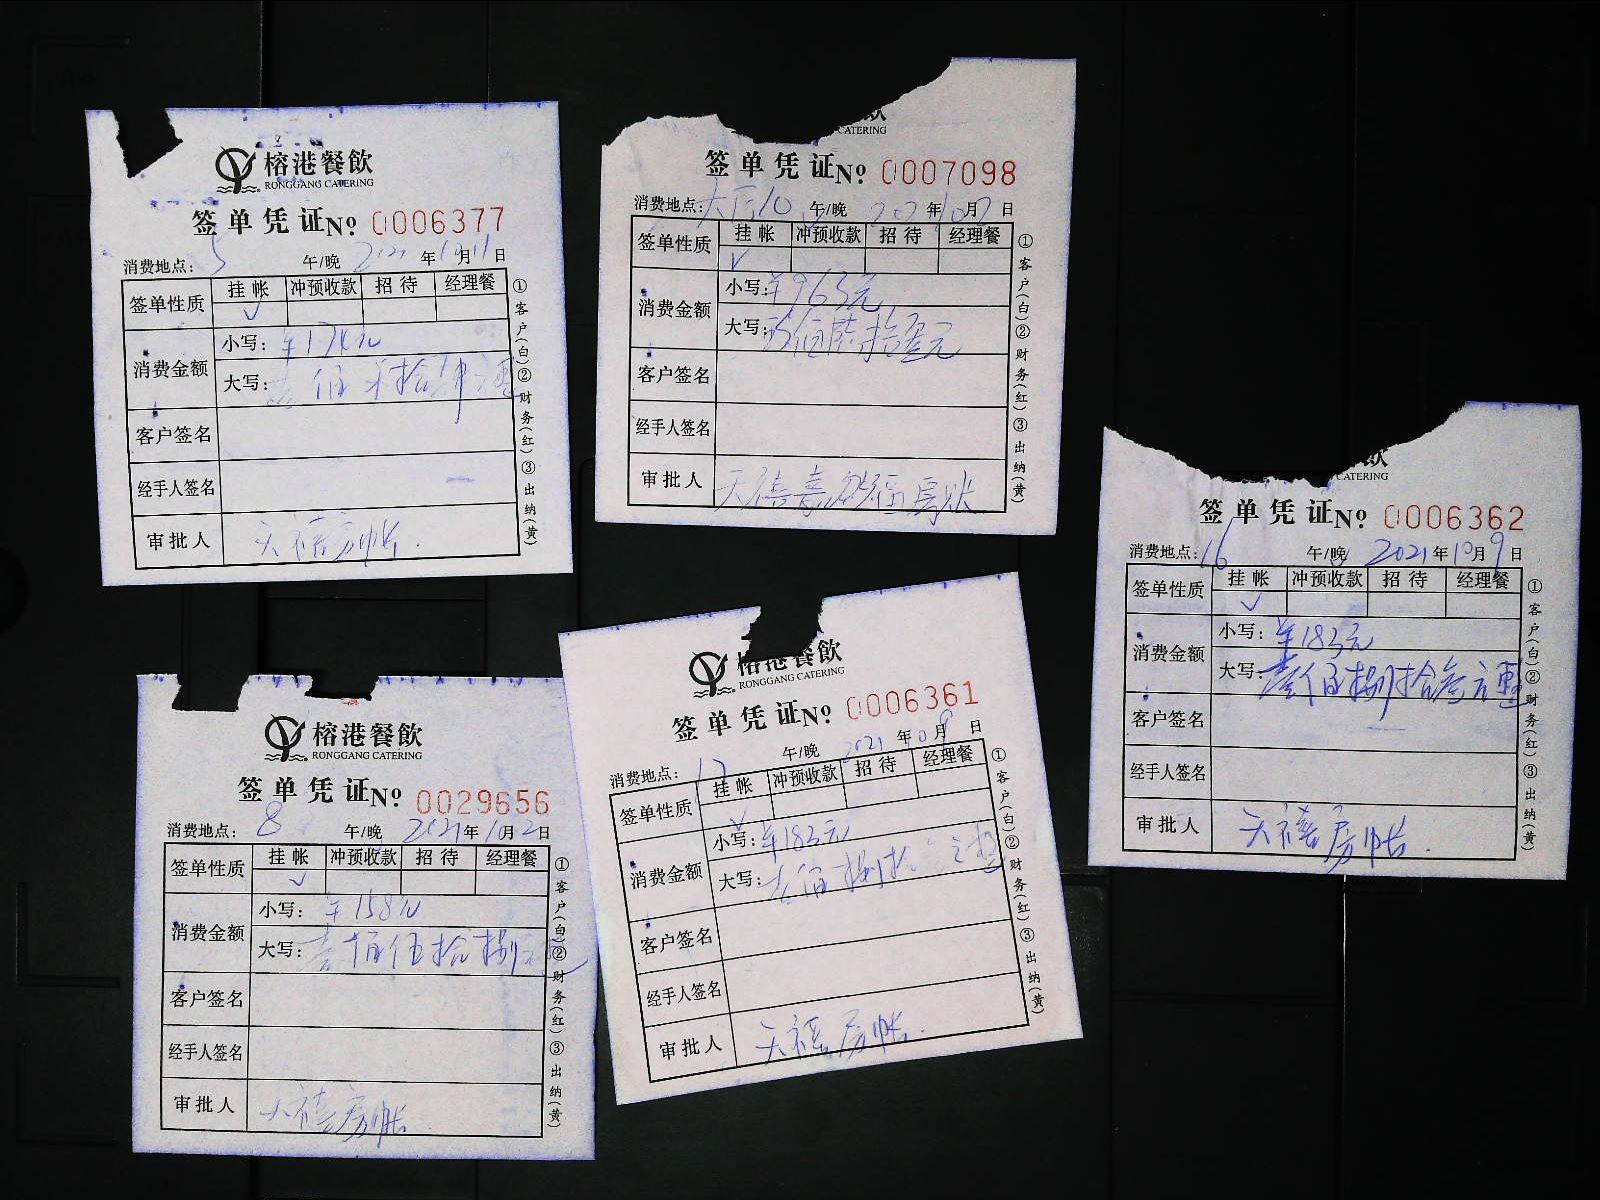 榕港餐飲
RONGGANG CATERING
签单凭证№ 0006377
消费地点: 5 午/晚 2021年10月11日
签单性质 挂帐 冲预收款 招待 经理餐
✓
消费金额 小写: ¥174元
大写: 壹佰柒拾肆元整
客户签名
经手人签名
审批人 天禧房帐.
①客户(白)②财务(红)③出纳(黄)
CATERING
签单凭证№ 0007098
消费地点: 午/晚 2021年10月7日
签单性质 挂帐 冲预收款 招待 经理餐
✓
消费金额 小写: ¥963元
大写: 玖佰陆拾叁元
客户签名
经手人签名
审批人 天禧
①客户(白)②财务(红)③出纳(黄)
CATERING
签单凭证№ 0006362
消费地点: 16 午/晚 2021年10月9日
签单性质 挂帐 冲预收款 招待 经理餐
✓
消费金额 小写: ¥183元
大写: 壹佰捌拾叁元整
客户签名
经手人签名
审批人 天禧房帐.
①客户(白)②财务(红)③出纳(黄)
榕港餐飲
RONGGANG CATERING
签单凭证№ 0029656
消费地点: 8 午/晚 2021年10月2日
签单性质 挂帐 冲预收款 招待 经理餐
✓
消费金额 小写: ¥158元
大写: 壹佰伍拾捌元
客户签名
经手人签名
审批人 天禧房帐
①客户(白)②财务(红)③出纳(黄)
榕港餐飲
RONGGANG CATERING
签单凭证№ 0006361
消费地点: 17 午/晚 2021年10月9日
签单性质 挂帐 冲预收款 招待 经理餐
✓
消费金额 小写: ¥183元
大写: 壹佰捌拾 元整
客户签名
经手人签名
审批人 天禧房帐.
①客户(白)②财务(红)③出纳(黄)